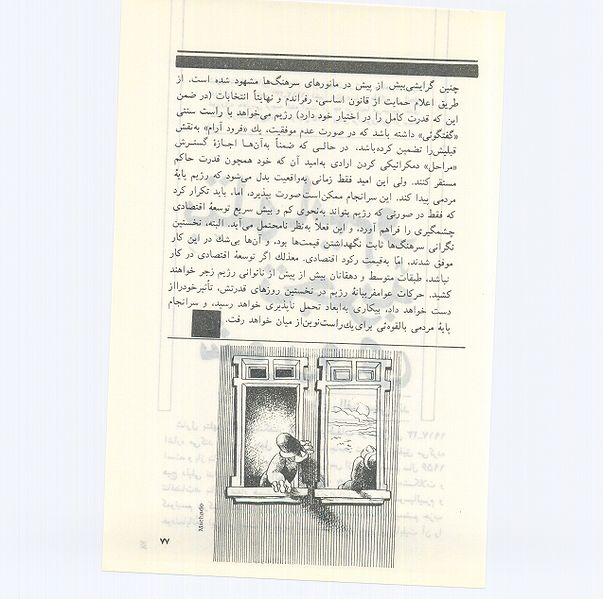 چنین گرایشی‌بیش از پیش در مانورهای سرهنگ‌ها مشهود شده است. از
طریق اعلام حمایت از قانون اساسی، رفراندم و نهایتاً انتخابات (در ضمن
این که قدرت کامل را در اختیار خود دارد) رژیم می‌خواهد با راست سنتی
«گفتگوئی» داشته باشد که در صورت عدم موفقیت، یك «فرود آرام» به‌نقش
قبلیش‌را تضمین کرده‌باشد. در حالـی که ضمناً به‌آن‌هـا اجـازهٔ گستـرش
«مراحل» دمکراتیکی کردن ارادی به‌امید آن که خود همچون قدرت حاکم
مستقر کنند. ولی این امید فقط زمانی به‌واقعیت بدل می‌شود که رژیم پایهٔ
مردمی پیدا کند. این سرانجام ممکن‌است‌صورت بپذیرد، اما، باید تکرار کرد
که فقط در صورتی که رژیم بتواند به‌نحوی کم و بیش سریع توسعهٔ اقتصادی
چشمگیری را فراهم آورد، و این فعلاً به‌نظر نامحتمل می‌آید. البته، نخستین
نگرانی سرهنگ‌ها ثابت نگهداشتن قیمت‌ها بود، و آن‌ها بی‌شك در این کار
موفق شدند، امّا به‌قیمت رکود اقتصادی. معذلك اگر توسعهٔ اقتصادی در کار
نباشد، طبقات متوسط و دهقانان بیش از پیش از ناتوانی رژیم زجر خواهند
کشید. حرکات عوامفریبانهٔ رژیم در نخستین روزهای قدرتش، تأثیرخودرااز
دست خواهد داد، بیکاری به‌ابعاد تحمل ناپذیری خواهد رسید، و سرانجام
پایهٔ مردمی بالقوه‌ئی برای‌یك‌راست‌نوین‌از میان خواهد رفت.
Machado
۷۷